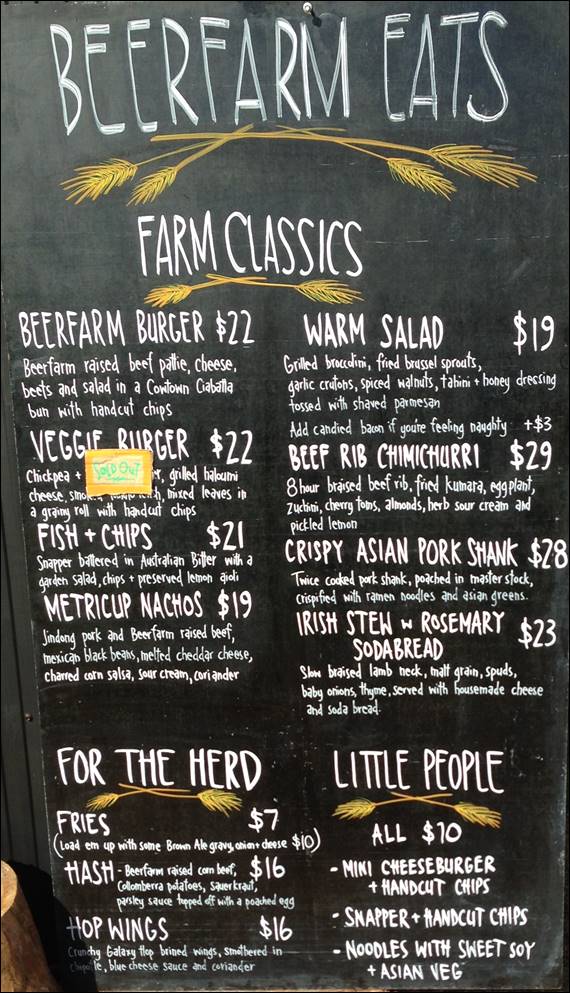 BEERFARM EATS
FARM CLASSICS
BEERFARM BURGER $22
Beerfarm raised beef pattie, cheese,
beets and salad in a Cowtown Ciabatta
bun with handcut chips
VEGGIE BURGER $22
SOLD OUT
Chickpea + grilled haloumi
cheese, mixed leaves in
a grainy roll with handcut chips
FISH + CHIPS $21
Snapper battered in Australian Bitter with a
garden salad, chips + preserved lemon aioli
METRICUP NACHOS $19
Jindong pork and Beerfarm raised beef,
mexican black beans, melted cheddar cheese,
charred corn salsa, sour cream, coriander
WARM SALAD $19
Grilled broccolini, fried brussel sprouts,
garlic crutons, spiced walnuts, tahini + honey dressing
tossed with shaved parmesan
Add candied bacon if youre feeling naughty +$3
BEEF RIB CHIMICHURRI $29
8 hour braised beef rib, fried kumara, eggplant,
zuchini, cherry toms, almonds, herb sour cream and
pickled lemon
CRISPY ASIAN PORK SHANK $28
Twice cooked pork shank, poached in master stock,
crispified with ramen noodles and asian greens.
IRISH STEW w ROSEMARY
SODABREAD $23
Slow braised lamb neck, malt grain, spuds,
baby onions, thyme, served with housemade cheese
and soda bread.
FOR THE HERD
FRIES $7
(Load em up with some Brown Ale gravy, onion + cheese $10)
HASH - Beerfarm raised corn beef, $16
Collomberra potatoes, sauerkraut,
parsley sauce topped off with a poached egg
HOP WINGS $16
Crunchy Galaxy Hop brined wings, smothered in
chipotle, blue cheese sauce and coriander
LITTLE PEOPLE
ALL $10
- MINI CHEESEBURGER
+ HANDCUT CHIPS
- SNAPPER + HANDCUT CHIPS
- NOODLES WITH SWEET SOY
+ ASIAN VEG